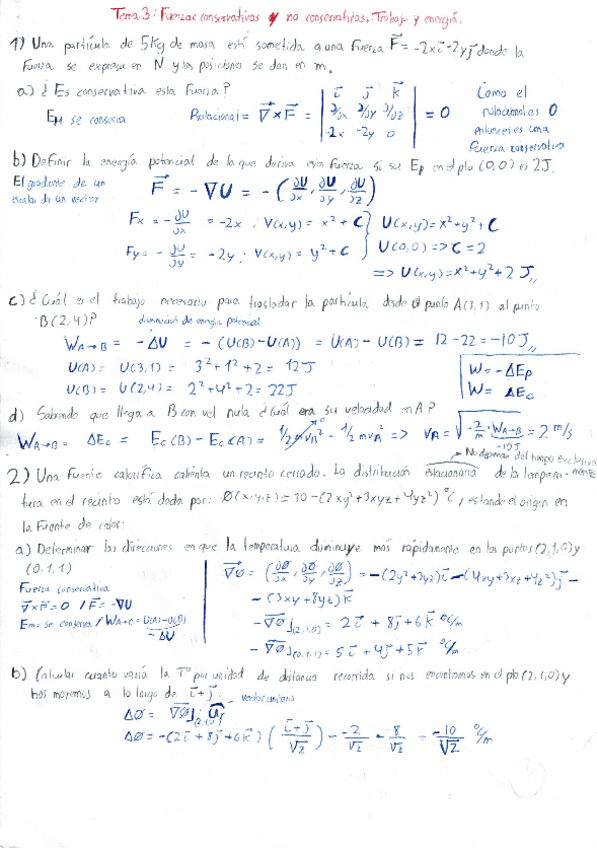 Tema 3: Fuerzas conservativas y no conservativas. Trabajo y energía.
1) Una partícula de 5Kg de masa está sometida a una fuerza F⃗ = -2x i⃗ - 2y j⃗ donde la
fuerza se expresa en N y las posiciones se dan en m.
a) ¿Es conservativa esta Fuerza?
EM se conserva
Rotacional = ∇⃗ × F⃗ = | i⃗ j⃗ k⃗ | ∂/∂x ∂/∂y ∂/∂z | -2x -2y 0 | = 0
Como el
rotacional es 0
entonces es una
Fuerza conservativa
b) Definir la energía potencial de la que deriva esta fuerza si su Ep en el pto (0,0) es 2J.
El gradiente de un
escalar da un vector
F⃗ = -∇U = -(∂U/∂x, ∂U/∂y, ∂U/∂z)
Fx = -∂U/∂x = -2x ; U(x,y) = x² + C
Fy = -∂U/∂y = -2y ; U(x,y) = y² + C
U(x,y) = x² + y² + C
U(0,0) => C = 2
=> U(x,y) = x² + y² + 2 J
c) ¿Cuál es el trabajo necesario para trasladar la partícula desde el punto A(3,1) al punto
B(2,4)?
disminución de energía potencial
WA→B = -ΔU = -(U(B) - U(A)) = U(A) - U(B) = 12 - 22 = -10 J
U(A) = U(3,1) = 3² + 1² + 2 = 12 J
U(B) = U(2,4) = 2² + 4² + 2 = 22J
W = -ΔEp
W = ΔEc
d) Sabiendo que llega a B con vel nula ¿Cuál era su velocidad en A?
WA→B = ΔEc = Ec(B) - Ec(A) = 1/2 m vB² - 1/2 m vA² => vA = √(-2/m · WA→B) = 2 m/s
0
-10J
No depende del tiempo exclusivamente
2) Una fuente calorífica calienta un recinto cerrado. La distribución estacionaria de la tempera-
tura en el recinto está dada por: Ø(x,y,z) = 30 - (2xy² + 3xyz + 4yz²) °C, estando el origen en
la fuente de calor:
a) Determinar las direcciones en que la temperatura disminuye más rápidamente en los puntos (2,1,0) y
(0,1,1)
Fuerza conservativa
∇⃗ × F⃗ = 0 / F⃗ = -∇U
Em = se conserva / WA→B = U(A) - U(B)
-ΔU
∇⃗Ø = (∂Ø/∂x, ∂Ø/∂y, ∂Ø/∂z) = -(2y² + 3yz) i⃗ - (4xy + 3xz + 4z²) j⃗ -
- (3xy + 8yz) k⃗
-∇⃗Ø](2,1,0) = 2 i⃗ + 8 j⃗ + 6 k⃗ °C/m
-∇⃗Ø](0,1,1) = 5 i⃗ + 4 j⃗ + 8 k⃗ °C/m
b) Calcular cuanto varía la Tº por unidad de distancia recorrida si nos encontramos en el pto (2,1,0) y
nos movemos a lo largo de i⃗ + j⃗.
vector unitario
ΔØ = ∇⃗Ø](2,1,0) · u⃗
ΔØ = -(2 i⃗ + 8 j⃗ + 6 k⃗) ((i⃗ + j⃗)/√2) = -2/√2 - 8/√2 = -10/√2 °/m